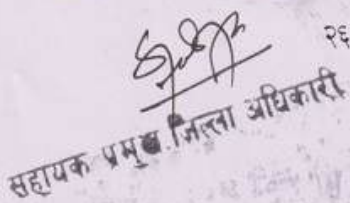 २६
सहायक प्रमुख जिल्ला अधिकारी